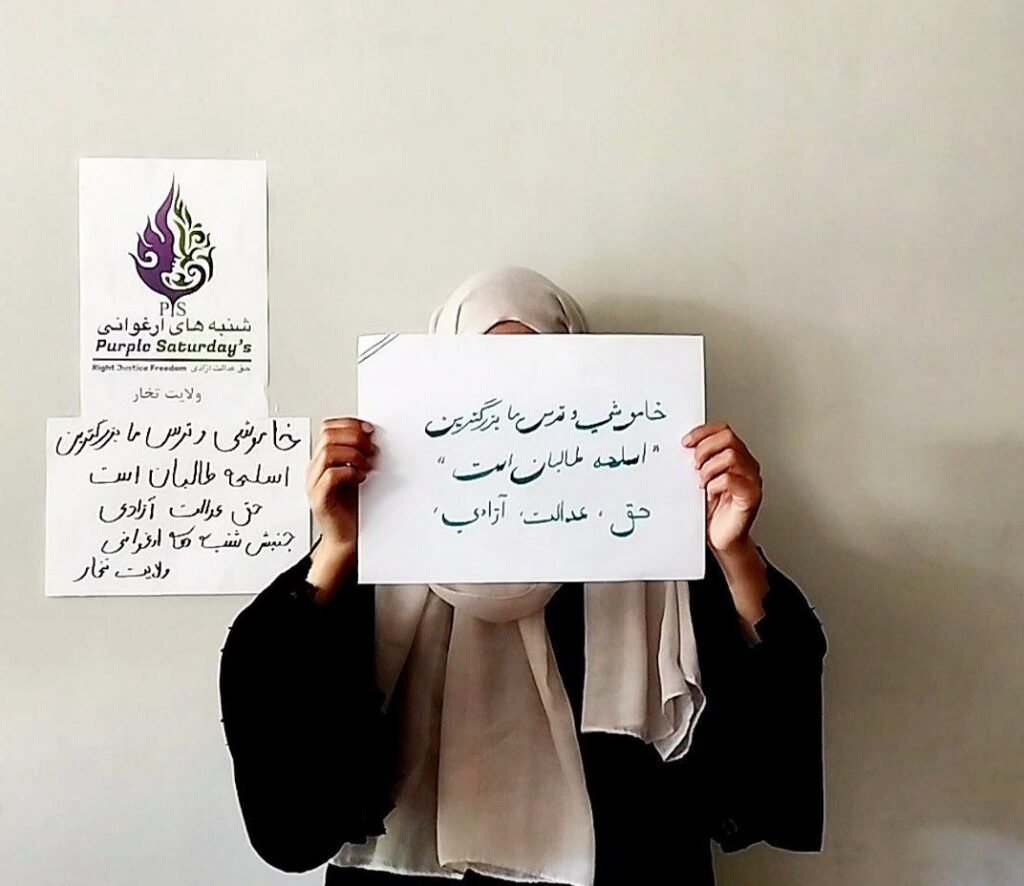 PS
شنبه های ارغوانی
Purple Saturday's
Right Justice Freedom حق عدالت آزادی
ولایت تخار
خاموشی و ترس ما بزرگترین
اسلحه طالبان است
حق عدالت آزادی
جنبش شنبه های ارغوانی
ولایت تخار
خاموشی و ترس ما بزرگترین
"اسلحه طالبان است"
حق، عدالت، آزادی،